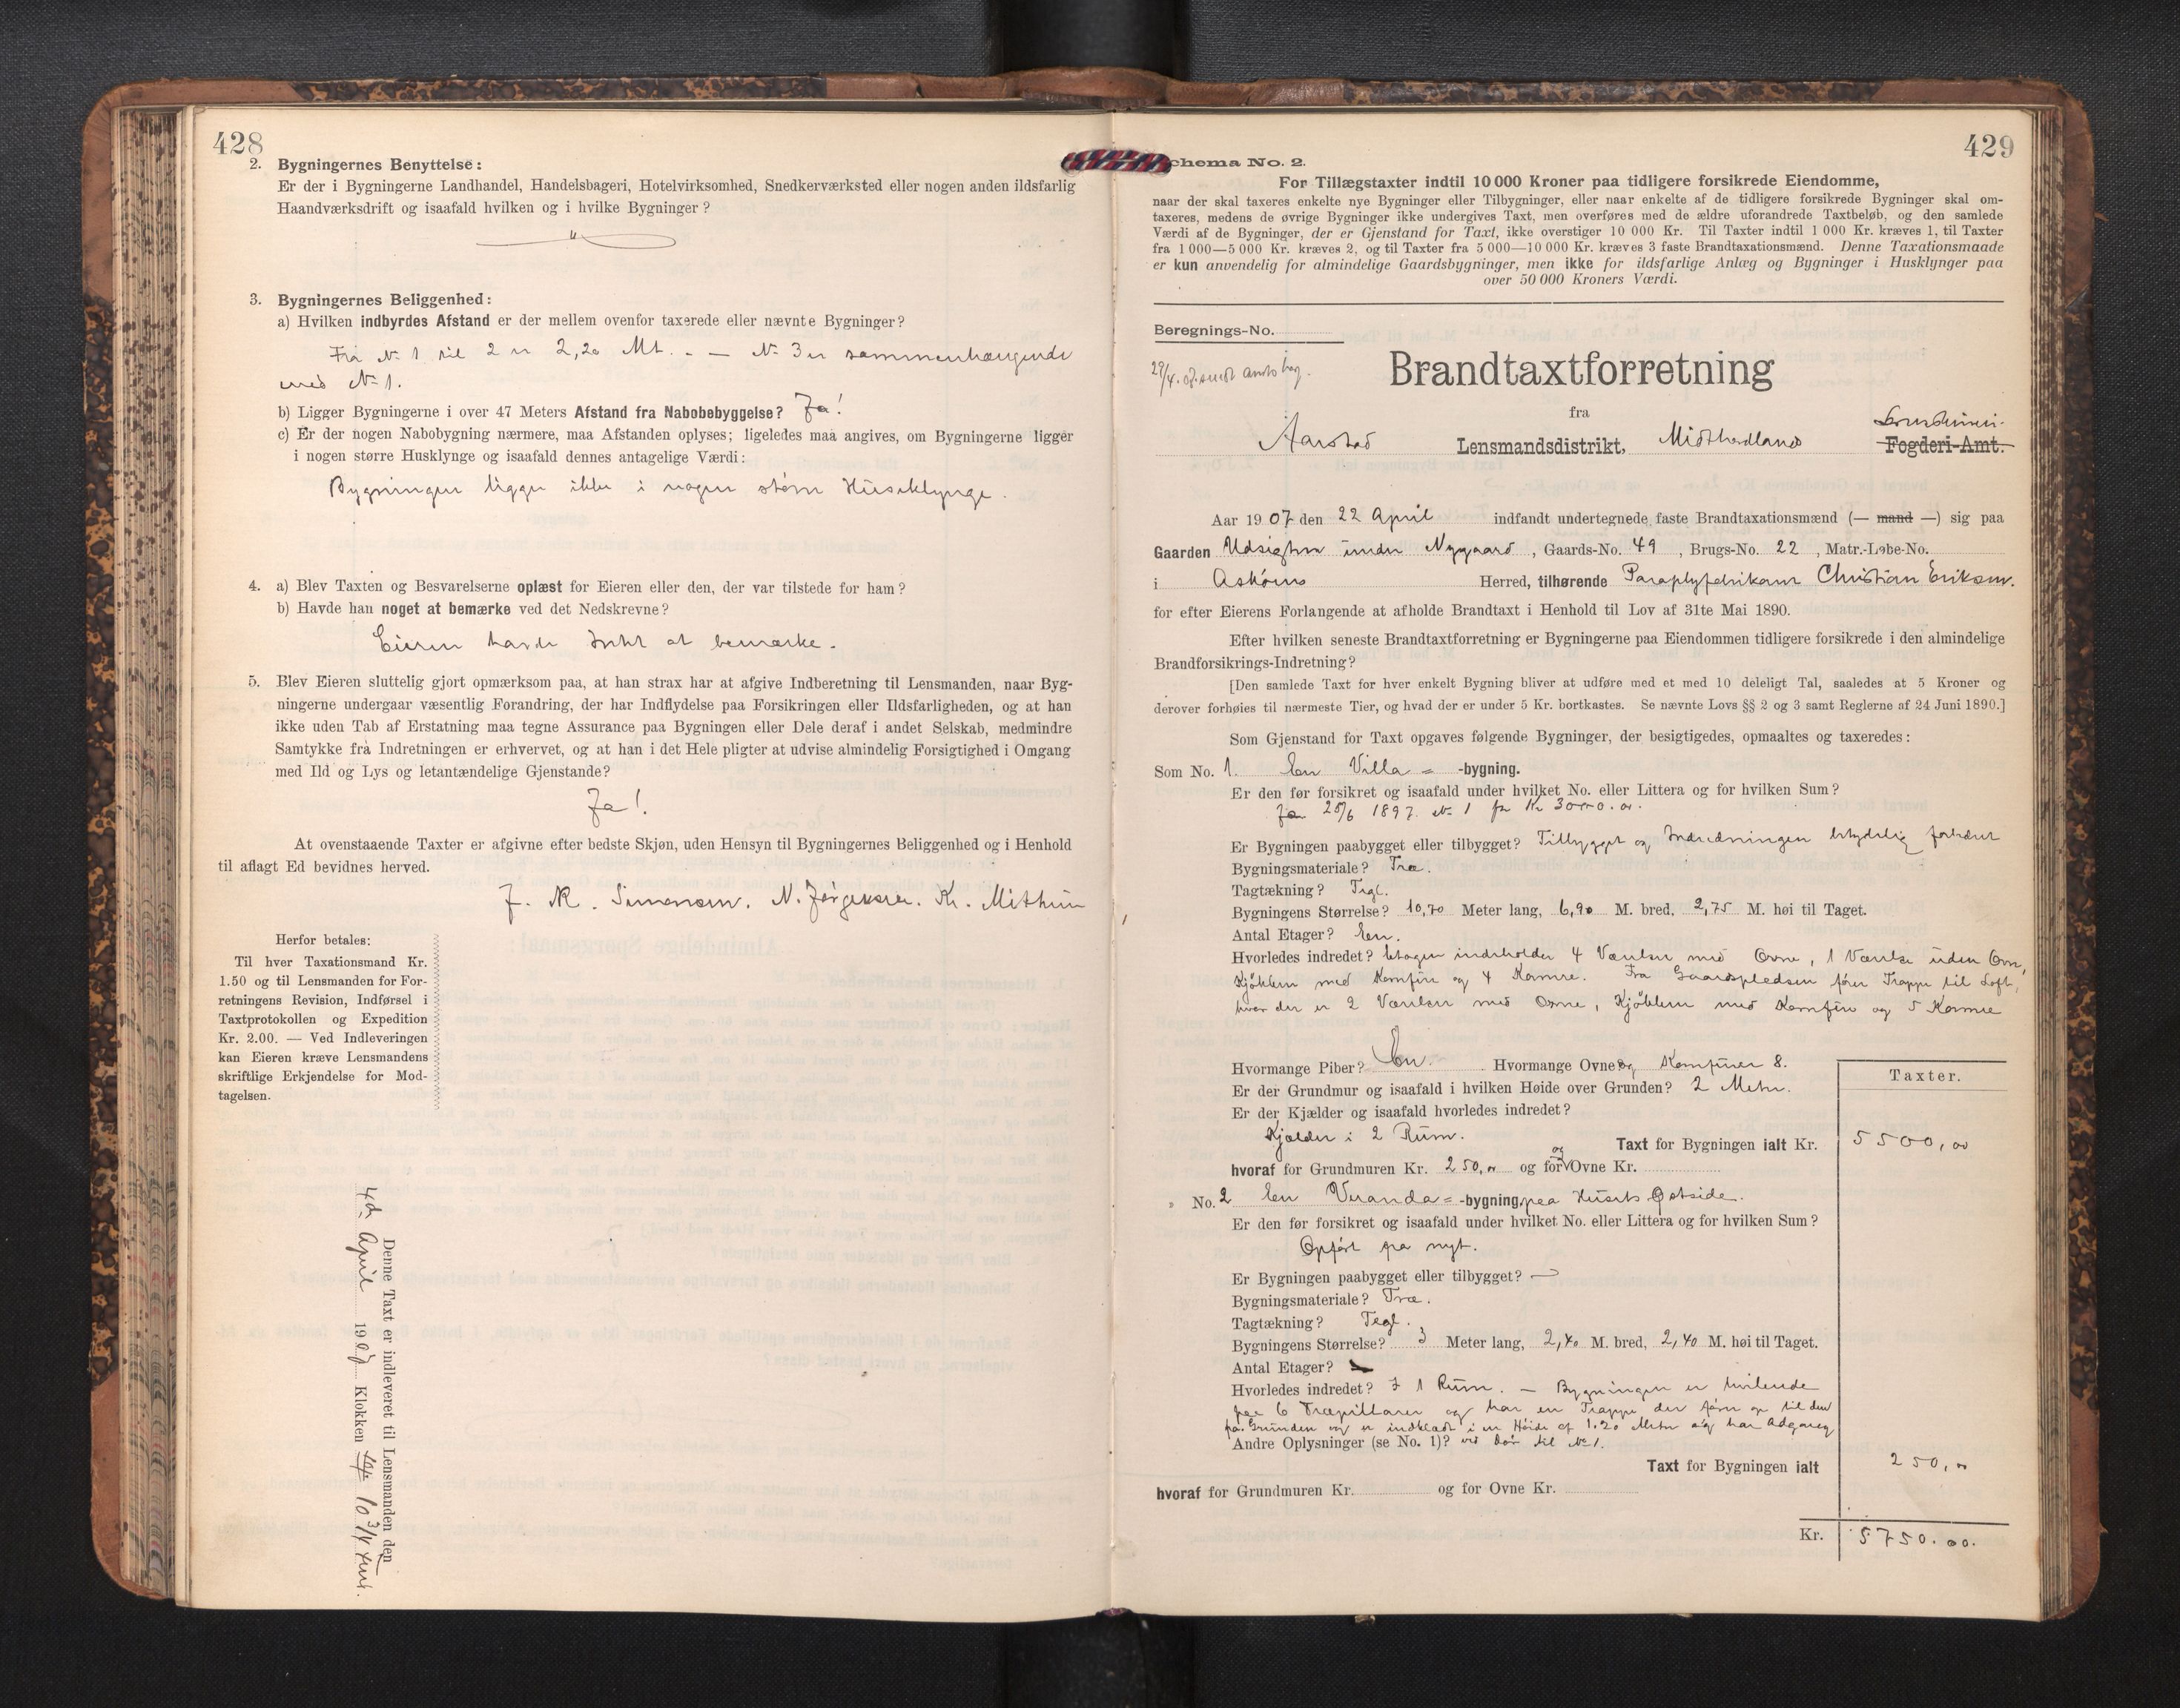 428
2. Bygningernes Benyttelse:
Er der i Bygningerne Landhandel, Handelsbageri, Hotelvirksomhed, Snedkerværksted eller nogen anden ildsfarlig
Haandværksdrift og isaafald hvilken og i hvilke Bygninger?
"
3. Bygningernes Beliggenhed:
a) Hvilken indbyrdes Afstand er der mellem ovenfor taxerede eller nævnte Bygninger?
Fra No 1 til 2 er 2,20 Mt. - — No 3 er sammenhængende
med No 1.
b) Ligger Bygningerne i over 47 Meters Afstand fra Nabobebyggelse? Ja!
c) Er der nogen Nabobygning nærmere, maa Afstanden oplyses; ligeledes maa angives, om Bygningerne ligger
i nogen større Husklynge og isaafald dennes antagelige Værdi:
Bygningen ligger ikke i nogen større Husklynge.
4. a) Blev Taxten og Besvarelserne oplæst for Eieren eller den, der var tilstede for ham?
b) Havde han noget at bemærke ved det Nedskrevne?
Eieren havde Intet at bemærke.
5. Blev Eieren sluttelig gjort opmærksom paa, at han strax har at afgive Indberetning til Lensmanden, naar Byg-
ningerne undergaar væsentlig Forandring, der har Indflydelse paa Forsikringen eller Ildsfarligheden, og at han
ikke uden Tab af Erstatning maa tegne Assurance paa Bygningen eller Dele deraf i andet Selskab, medmindre
Samtykke fra Indretningen er erhvervet, og at han i det Hele pligter at udvise almindelig Forsigtighed i Omgang
med Ild og Lys og letantændelige Gjenstande?
Ja!
At ovenstaaende Taxter er afgivne efter bedste Skjøn, uden Hensyn til Bygningernes Beliggenhed og i Henhold
til aflagt Ed bevidnes herved.
J. R. Simonsen. N. Jørgensen. Kr. Mithun
Herfor betales:
Til hver Taxationsmand Kr.
1.50 og til Lensmanden for For-
retningens Revision, Indførsel i
Taxtprotokollen og Expedition
Kr. 2.00. — Ved Indleveringen
kan Eieren kræve Lensmandens
skriftlige Erkjendelse for Mod-
tagelsen.
Denne Taxt er indleveret til Lensmanden den
4d April 1907 Klokken 10 3/4 Fmt.
429
chema No. 2.
For Tillægstaxter indtil 10 000 Kroner paa tidligere forsikrede Eiendomme,
naar der skal taxeres enkelte nye Bygninger eller Tilbygninger, eller naar enkelte af de tidligere forsikrede Bygninger skal om-
taxeres, medens de øvrige Bygninger ikke undergives Taxt, men overføres med de ældre uforandrede Taxtbeløb, og den samlede
Værdi af de Bygninger, der er Gjenstand for Taxt, ikke overstiger 10 000 Kr. Til Taxter indtil 1 000 Kr. kræves 1, til Taxter
fra 1 000—5 000 Kr. kræves 2, og til Taxter fra 5 000—10 000 Kr. kræves 3 faste Brandtaxationsmænd. Denne Taxationsmaade
er kun anvendelig for almindelige Gaardsbygninger, men ikke for ildsfarlige Anlæg og Bygninger i Husklynger paa
over 50 000 Kroners Værdi.
Beregnings-No.
Brandtaxtforretning
fra
Aarstad Lensmandsdistrikt, Midthordlands Sorenskriveri. Fogderi-Amt.
Aar 1907 den 22 April indfandt undertegnede faste Brandtaxationsmænd (— mand —) sig paa
Gaarden Udsigten under Nygaard, Gaards-No. 49, Brugs-No. 22, Matr.-Løbe-No.
i Askøens Herred, tilhørende Paraplyfabrikant Christian Eriksen.
for efter Eierens Forlangende at afholde Brandtaxt i Henhold til Lov af 31te Mai 1890.
Efter hvilken seneste Brandtaxtforretning er Bygningerne paa Eiendommen tidligere forsikrede i den almindelige
Brandforsikrings-Indretning?
[Den samlede Taxt for hver enkelt Bygning bliver at udføre med et med 10 deleligt Tal, saaledes at 5 Kroner og
derover forhøies til nærmeste Tier, og hvad der er under 5 Kr. bortkastes. Se nævnte Lovs §§ 2 og 3 samt Reglerne af 24 Juni 1890.]
Som Gjenstand for Taxt opgaves følgende Bygninger, der besigtigedes, opmaaltes og taxeredes:
Som No. 1. En Villa = -bygning.
Er den før forsikret og isaafald under hvilket No. eller Littera og for hvilken Sum?
Ja 25/6 1897. No 1 for Kr 3000.00.
Er Bygningen paabygget eller tilbygget? Tilbygget og Indredningen betydelig forbedret
Bygningsmateriale? Træ.
Tagtækning? Tegl.
Bygningens Størrelse? 10,70 Meter lang, 6,90 M. bred, 2,75 M. høi til Taget.
Antal Etager? En.
Hvorledes indredet? Etagen indeholder 4 Værelser med Ovne, 1 Værelse uden Ovn,
Kjøkken med Komfur og 4 Kamre. Fra Gaardspladsen fører Trappe til Loft,
hvor der er 2 Værelser med Ovne, Kjøkken med Komfur og 5 Kamre
Hvormange Piber? En. Hvormange Ovne og Komfurer 8.
Er der Grundmur og isaafald i hvilken Høide over Grunden? 2 Meter.
Er der Kjælder og isaafald hvorledes indredet?
Kjælder i 2 Rum.
Taxter.
Taxt for Bygningen ialt Kr. 5500,00
hvoraf for Grundmuren Kr. 250,00 og for og Ovne Kr.
" No. 2 En Veranda = -bygning paa Husets Østside.
Er den før forsikret og isaafald under hvilket No. eller Littera og for hvilken Sum?
Opført fra nyt.
Er Bygningen paabygget eller tilbygget? —
Bygningsmateriale? Træ.
Tagtækning? Tegl.
Bygningens Størrelse? 3 Meter lang, 2,40 M. bred, 2,40 M. høi til Taget.
Antal Etager?
Hvorledes indredet? I 1 Rum. — Bygningen er hvilende
paa 6 Træpillarer og har en Trappe der fører op til den
fra Grunden og er indklædt i en Høide af 1.20 Meter og har Adgang
Andre Oplysninger (se No. 1)? ved Dør til No 1.
Taxt for Bygningen ialt 250,00
hvoraf for Grundmuren Kr. og for Ovne Kr.
Kr. 5750.00.